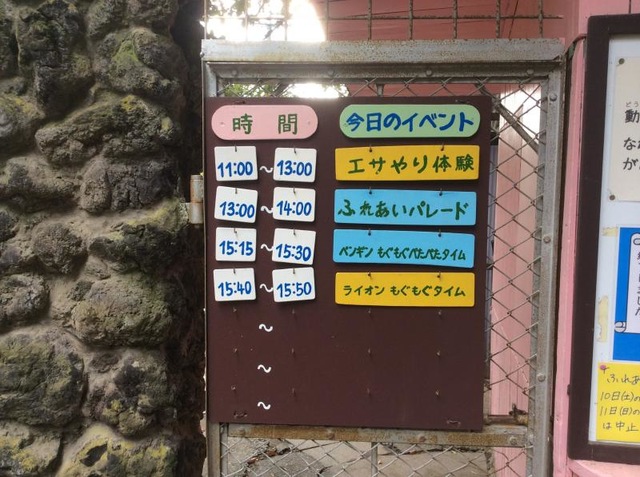 時間 今日のイベント
11:00 ~ 13:00 エサやり体験
13:00 ~ 14:00 ふれあいパレード
15:15 ~ 15:30 ペンギン もぐもぐぺたぺたタイム
15:40 ~ 15:50 ライオン もぐもぐタイム
~
~
~
動
な
が
ふれあ
10日(土)の
11日(日)の
は中止